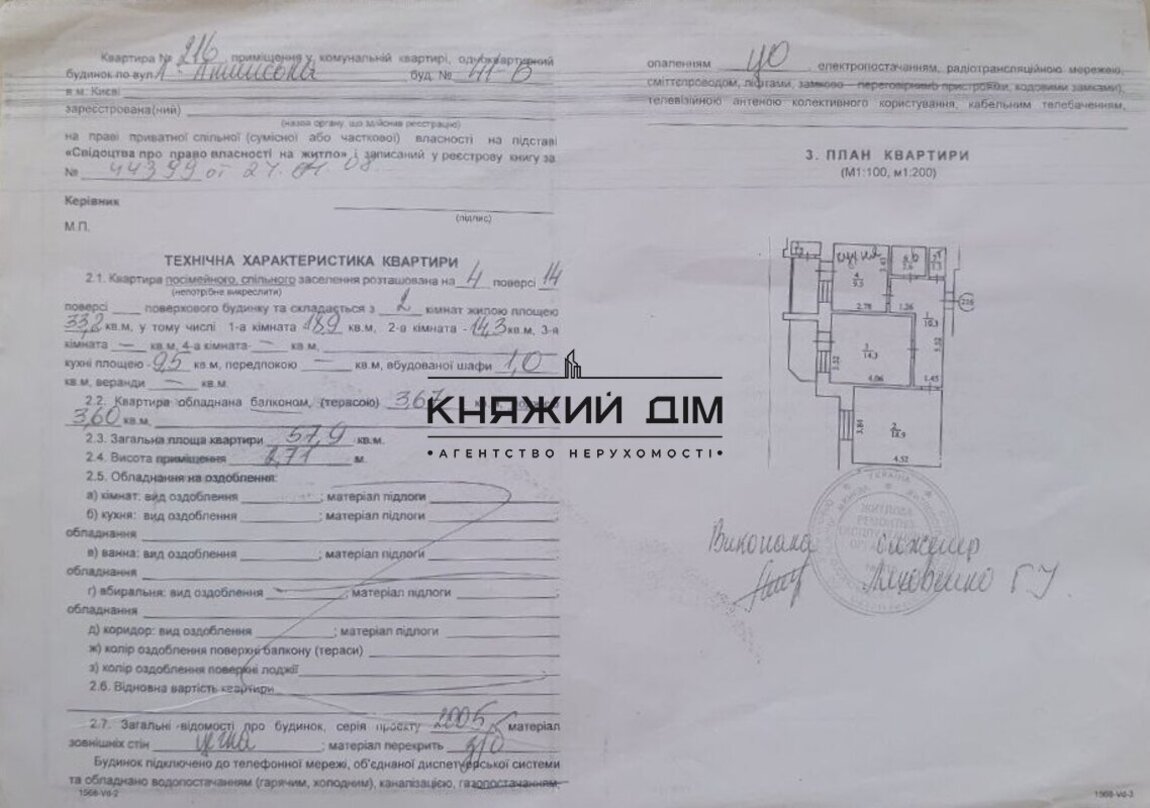 Квартира № 216, приміщення у комунальній квартирі, одноквартирний
будинок по вул. буд. № 41-В
в м. Києві
зареєстрована(ний)
(назва органу, що здійснив реєстрацію)
на праві приватної спільної (сумісної або часткової) власності на підставі
«Свідоцтва про право власності на житло» і записаний у реєстрову книгу за
№ 44399 от 24. 04. 08
Керівник
(підпис)
М.П.
ТЕХНІЧНА ХАРАКТЕРИСТИКА КВАРТИРИ
2.1. Квартира посімейного, спільного заселення розташована на 4 поверсі 14
(непотрібне викреслити)
поверсі ___ поверхового будинку та складається з 2 кімнат жилою площею
33,2 кв.м, у тому числі 1-а кімната 18,9 кв.м, 2-а кімната - 14,3 кв.м, 3-я
кімната — кв.м, 4-а кімната - — кв.м,
кухні площею - 9,5 кв.м, передпокою — кв.м, вбудованої шафи 1,0
кв.м, веранди — кв.м.
2.2. Квартира обладнана балконом, (терасою) 3,67
3,60 кв.м,
2.3. Загальна площа квартири 57,9 кв.м.
2.4. Висота приміщення 2,71 м.
2.5. Обладнання на оздоблення:
а) кімнат: вид оздоблення ; матеріал підлоги
б) кухня: вид оздоблення ; матеріал підлоги
обладнання
в) ванна: вид оздоблення ; матеріал підлоги
обладнання
г) вбиральня: вид оздоблення ; матеріал підлоги
обладнання
д) коридор: вид оздоблення ; матеріал підлоги
ж) колір оздоблення поверхні балкону (тераси)
з) колір оздоблення поверхні лоджії
2.6. Відновна вартість квартири
2.7. Загальні відомості про будинок, серія проєкту 2005, матеріал
зовнішніх стін цегла ; матеріал перекрить з/б
Будинок підключено до телефонної мережі, об'єднаної диспетчерської системи
та обладнано водопостачанням (гарячим, холодним), каналізацією, газопостачанням,
1568-Vd-2
опаленням ЦО, електропостачанням, радіотрансляційною мережею,
сміттєпроводом, ліфтами, замково – переговірними пристроями, кодовими замками),
телевізійною антеною колективного користування, кабельним телебаченням,
3. ПЛАН КВАРТИРИ
(М1:100, м1:200)
кухня
4
9.5
2.78
1.36
216
1
10.3
5.52
3
14.3
3.52
4.06
1.45
3.84
2
18.9
4.52
УКРАЇНА
ЖИТЛОВА
Виконала інженер
Ляховенко Г.У.
1568-Vd-3
КНЯЖИЙ ДІМ
•АГЕНТСТВО НЕРУХОМОСТІ•